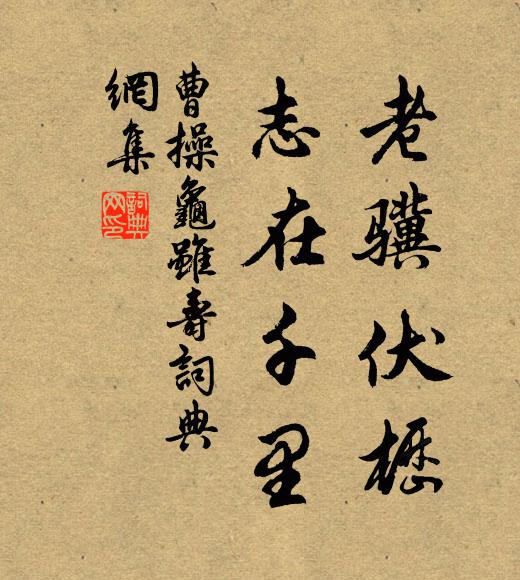 老驥伏櫪
志在千里
曹操龜雖壽詞典
網集
詞典
网印